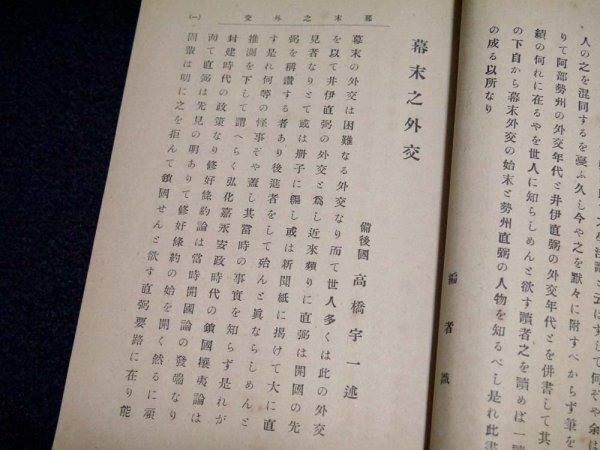 人の之を混同するを憂ふ久し今や之を默々に附すべからず筆を
りて阿部勢州の外交年代と井伊直弼の外交年代とを併書して其
績の何れに在るやを世人に知らしめんと欲す讀者之を讀めば一
の下自から幕末外交の始末と勢州直弼の人物を知るべし是れ此書
の成る以所なり
編者識
幕末之外交
(一)
幕末之外交
備後國 高橋宇一述
幕末の外交は困難なる外交なり而て世人多くは此の外交
を以て井伊直弼の外交と爲し近來頻りに直弼は開國の先
見者なりとて或は册子に編し或は新聞紙に掲けて大に直
弼を稱讃する者あり後進者をして殆んと眞ならしめんと
す是れ何等の怪事ぞや蓋し其當時の事實を知らず是れが
推測を下して謂へらく弘化嘉永安政時代の鎖國攘夷論は
封建時代の政策なり修好條約論は當時開國論の發端なり
而て直弼は先見の明ありて修好條約の始を開く然るに頑
固輩は明に之を拒んて鎖國せんと欲す直弼要路に在り能